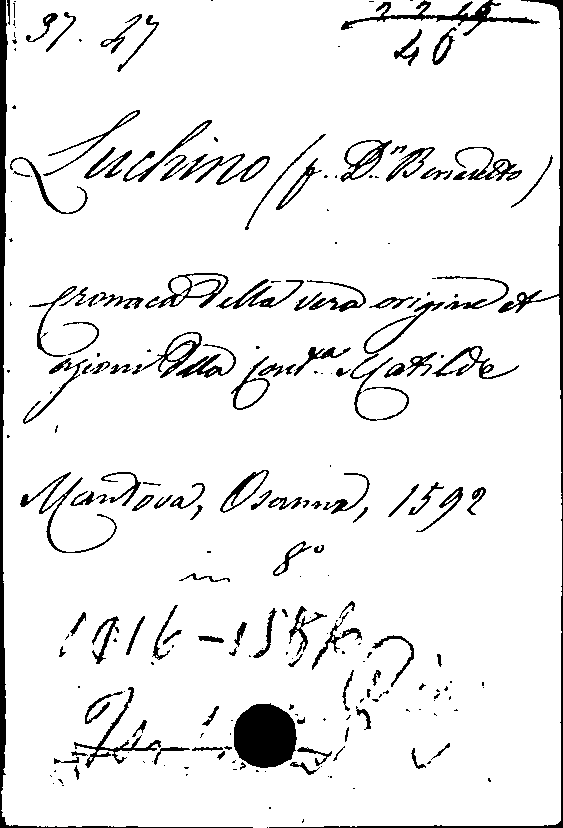 37. 47
40
Luchino (p. Dn Benedetto)
Cronaca della vera origine et
azioni della Contxa Matilde
Mantova, Osanna, 1592
in 8°